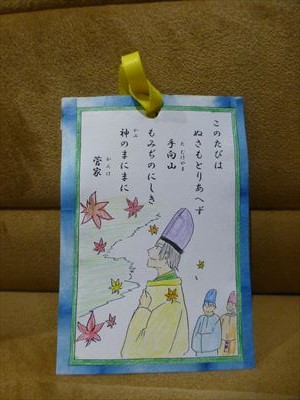 このたびは
ぬさもとりあへず
手向山
もみぢのにしき
神のまにまに
菅家
たむけやま
かみ
かんけ